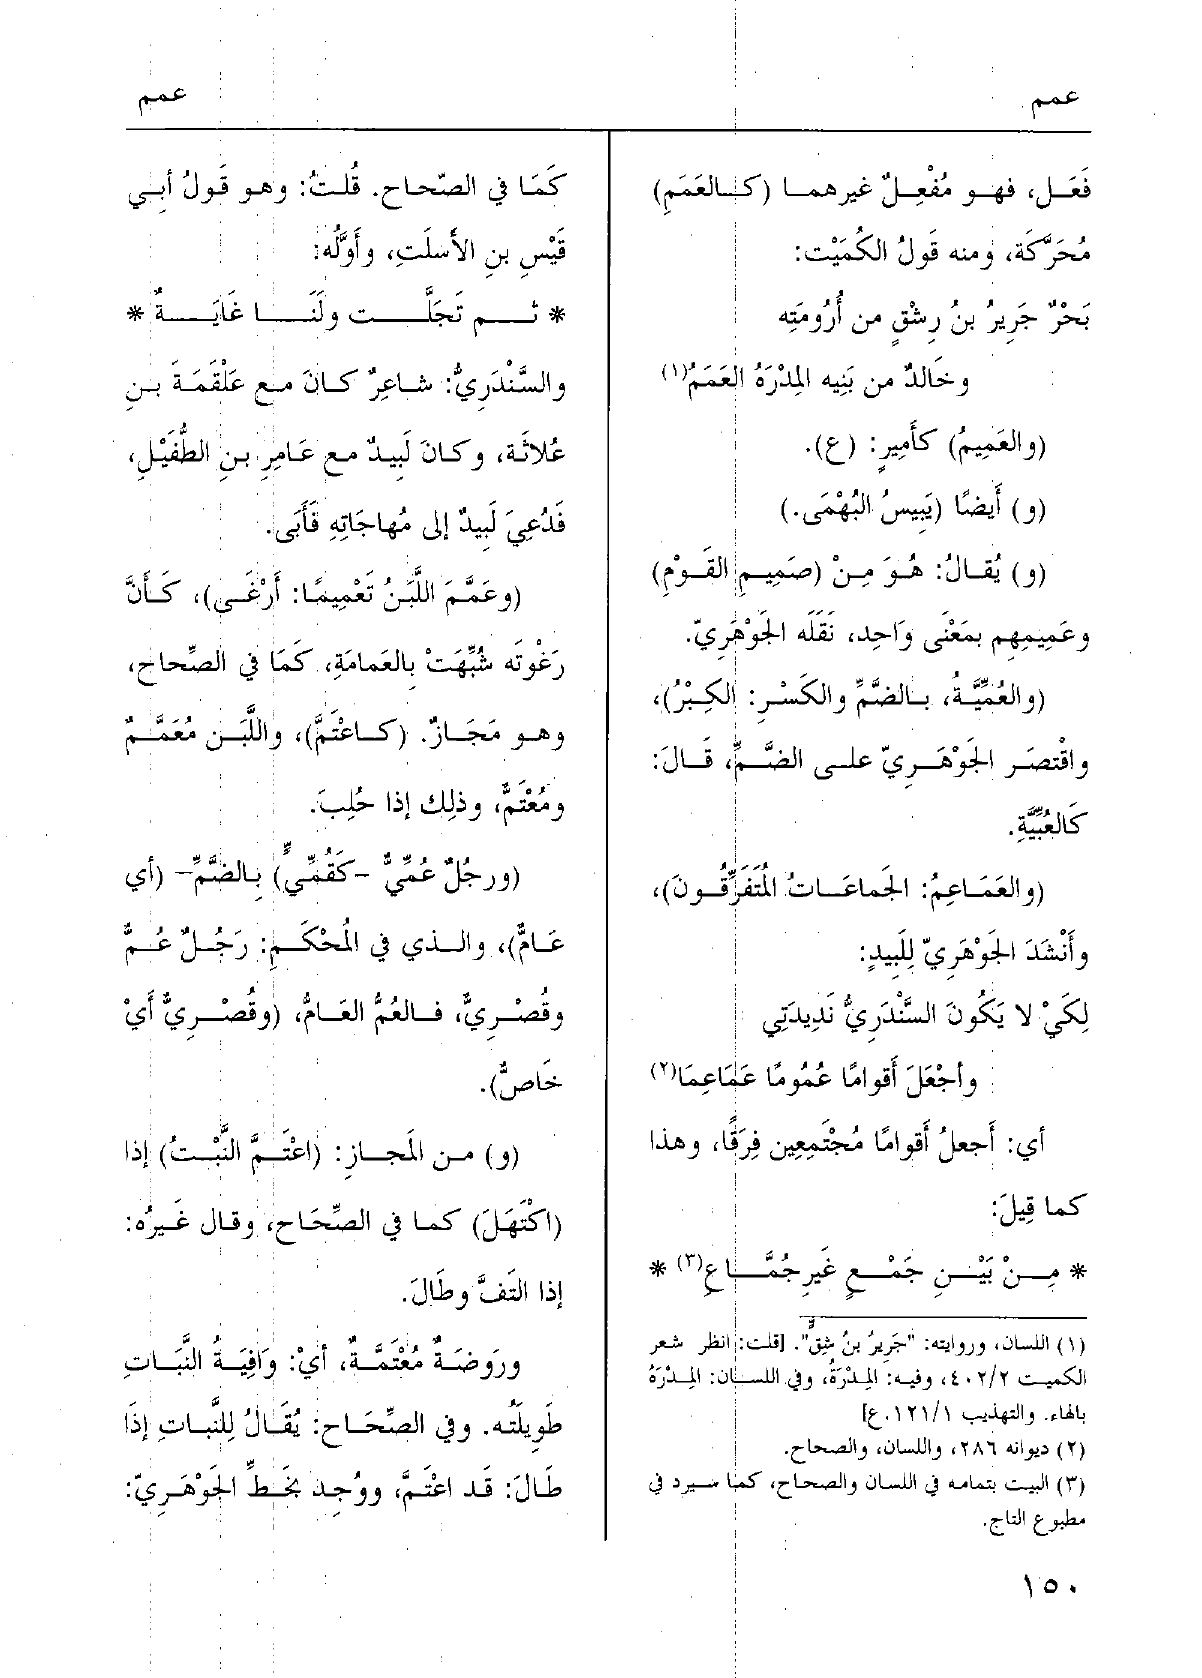 عمم
عمم
فَعَل، فهو مُفْعِلٌ غيرهما (كالعَمَمِ)
مُحَرَّكَة، ومنه قَولُ الكُمَيْت:
بَحْرٌ جَرِيرُ بنُ رِشْقٍ من أُرُومَتِه
وخَالدٌ من بَنِيه المِدْرَهُ العَمَمُ(١)
(والعَمِيمُ) كأَمِيرٍ: (ع).
(و) أَيضًا (يَبِيسُ البُهْمَى.)
(و) يُقالُ: هُوَ مِنْ (صَمِيمِ القَوْمِ)
وعَمِيمِهِم بمَعْنًى وَاحِدٍ، نَقَلَه الجَوْهَرِيّ.
(والعُمِّيَّةُ، بالضَّمِّ والكَسْرِ: الكِبْرُ)،
واقْتصَر الجَوْهَرِيّ على الضَّمِّ، قَالَ:
كَالعُبِّيَّةِ.
(والعَمَاعِمُ: الجَماعَاتُ المُتَفَرِّقُونَ)،
وأَنْشَدَ الجَوْهَرِيّ لِلَبِيدٍ:
لِكَيْ لا يَكُونَ السَّنْدَرِيُّ نَدِيدَتِي
وأجْعَلَ أَقوامًا عُمُومًا عَمَاعِمَا(٢)
أي: أَجعلُ أَقوامًا مُجْتَمِعِين فِرَقًا، وهذا
كما قِيلَ:
* مِنْ بَيْنِ جَمْعٍ غَيرِ جُمَّاعِ(٣) *
(١) اللسان، وروايته: "جَرِيرُ بنُ شِقٍّ". [قلت: انظر شعر
الكميت ٤٠٢/٢، وفيه: المِدْرَةُ، وفي اللسان: المِدْرَهُ
بالهاء. والتهذيب ١٢١/١.ع]
(٢) ديوانه ٢٨٦، واللسان، والصحاح.
(٣) البيت بتمامه في اللسان والصحاح، كما سيرد في
مطبوع التاج.
كَمَا في الصّحاح. قُلتُ: وهو قَولُ أبِي
قَيْسِ بنِ الأسلَتِ، وأَوَّلُه:
* ثم تَجَلَّت ولَنَا غَايَةٌ *
والسَّنْدَرِيُّ: شاعِرٌ كانَ مع عَلْقَمَةَ بنِ
عُلاثَة، وكانَ لَبِيدٌ مع عَامِرِ بنِ الطُّفَيْلِ،
فَدُعِيَ لَبِيدٌ إلى مُهاجَاتِهِ فَأَبَى.
(وعَمَّمَ اللَّبَنُ تَعْمِيمًا: أَرْغَى)، كَأَنَّ
رَغْوتَه شُبِّهَتْ بالعَمامَةِ، كمَا في الصِّحاح،
وهو مَجَازٌ. (كاعْتَمَّ)، واللَّبَن مُعَمَّمٌ
ومُعْتَمٌّ، وذلِك إذا حُلِبَ.
(ورجُلٌ عُمِّيٌّ -كَقُمِّيٍّ) بِالضَّمِّ- (أي
عَامٌّ)، والذي في المُحْكَمِ: رَجُلٌ عُمٌّ
وقُصْرِيٌّ، فالعُمُّ العَامُّ، (وقُصْرِيٌّ أَيْ
خَاصٌّ).
(و) من المَجازِ: (اعْتَمَّ النَّبْتُ) إذا
(اكْتَهَلَ) كما في الصِّحَاح، وقال غَيرُه:
إذا التَفَّ وطَالَ.
ورَوضَةٌ مُعْتَمَّةٌ، أَيْ: وَافِيَةُ النَّبَاتِ
طَوِيلَتُه. وفي الصِّحَاح: يُقَالُ لِلنَّباتِ إذَا
طَالَ: قَد اعْتَمَّ، ووُجِد بخَطِّ الجَوْهَرِيّ:
١٥٠